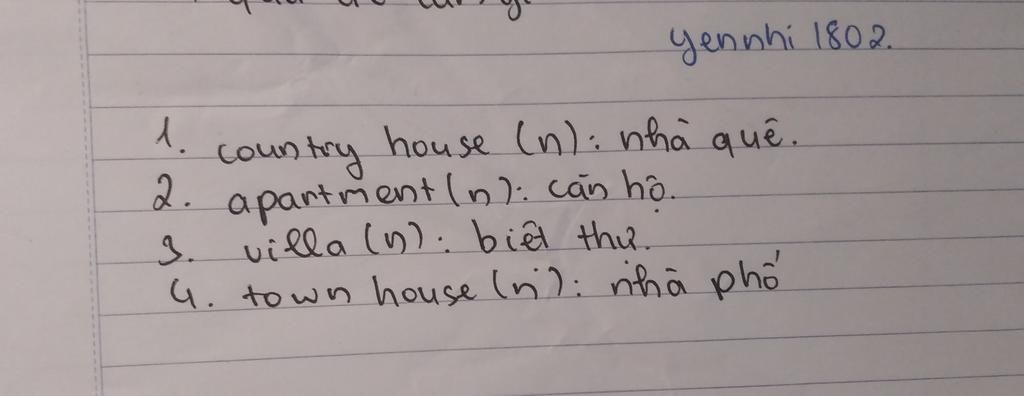 yennhi 1802.
1. country house (n): nhà quê.
2. apartment (n): căn hộ.
3. villa (n): biệt thự.
4. town house (n): nhà phố